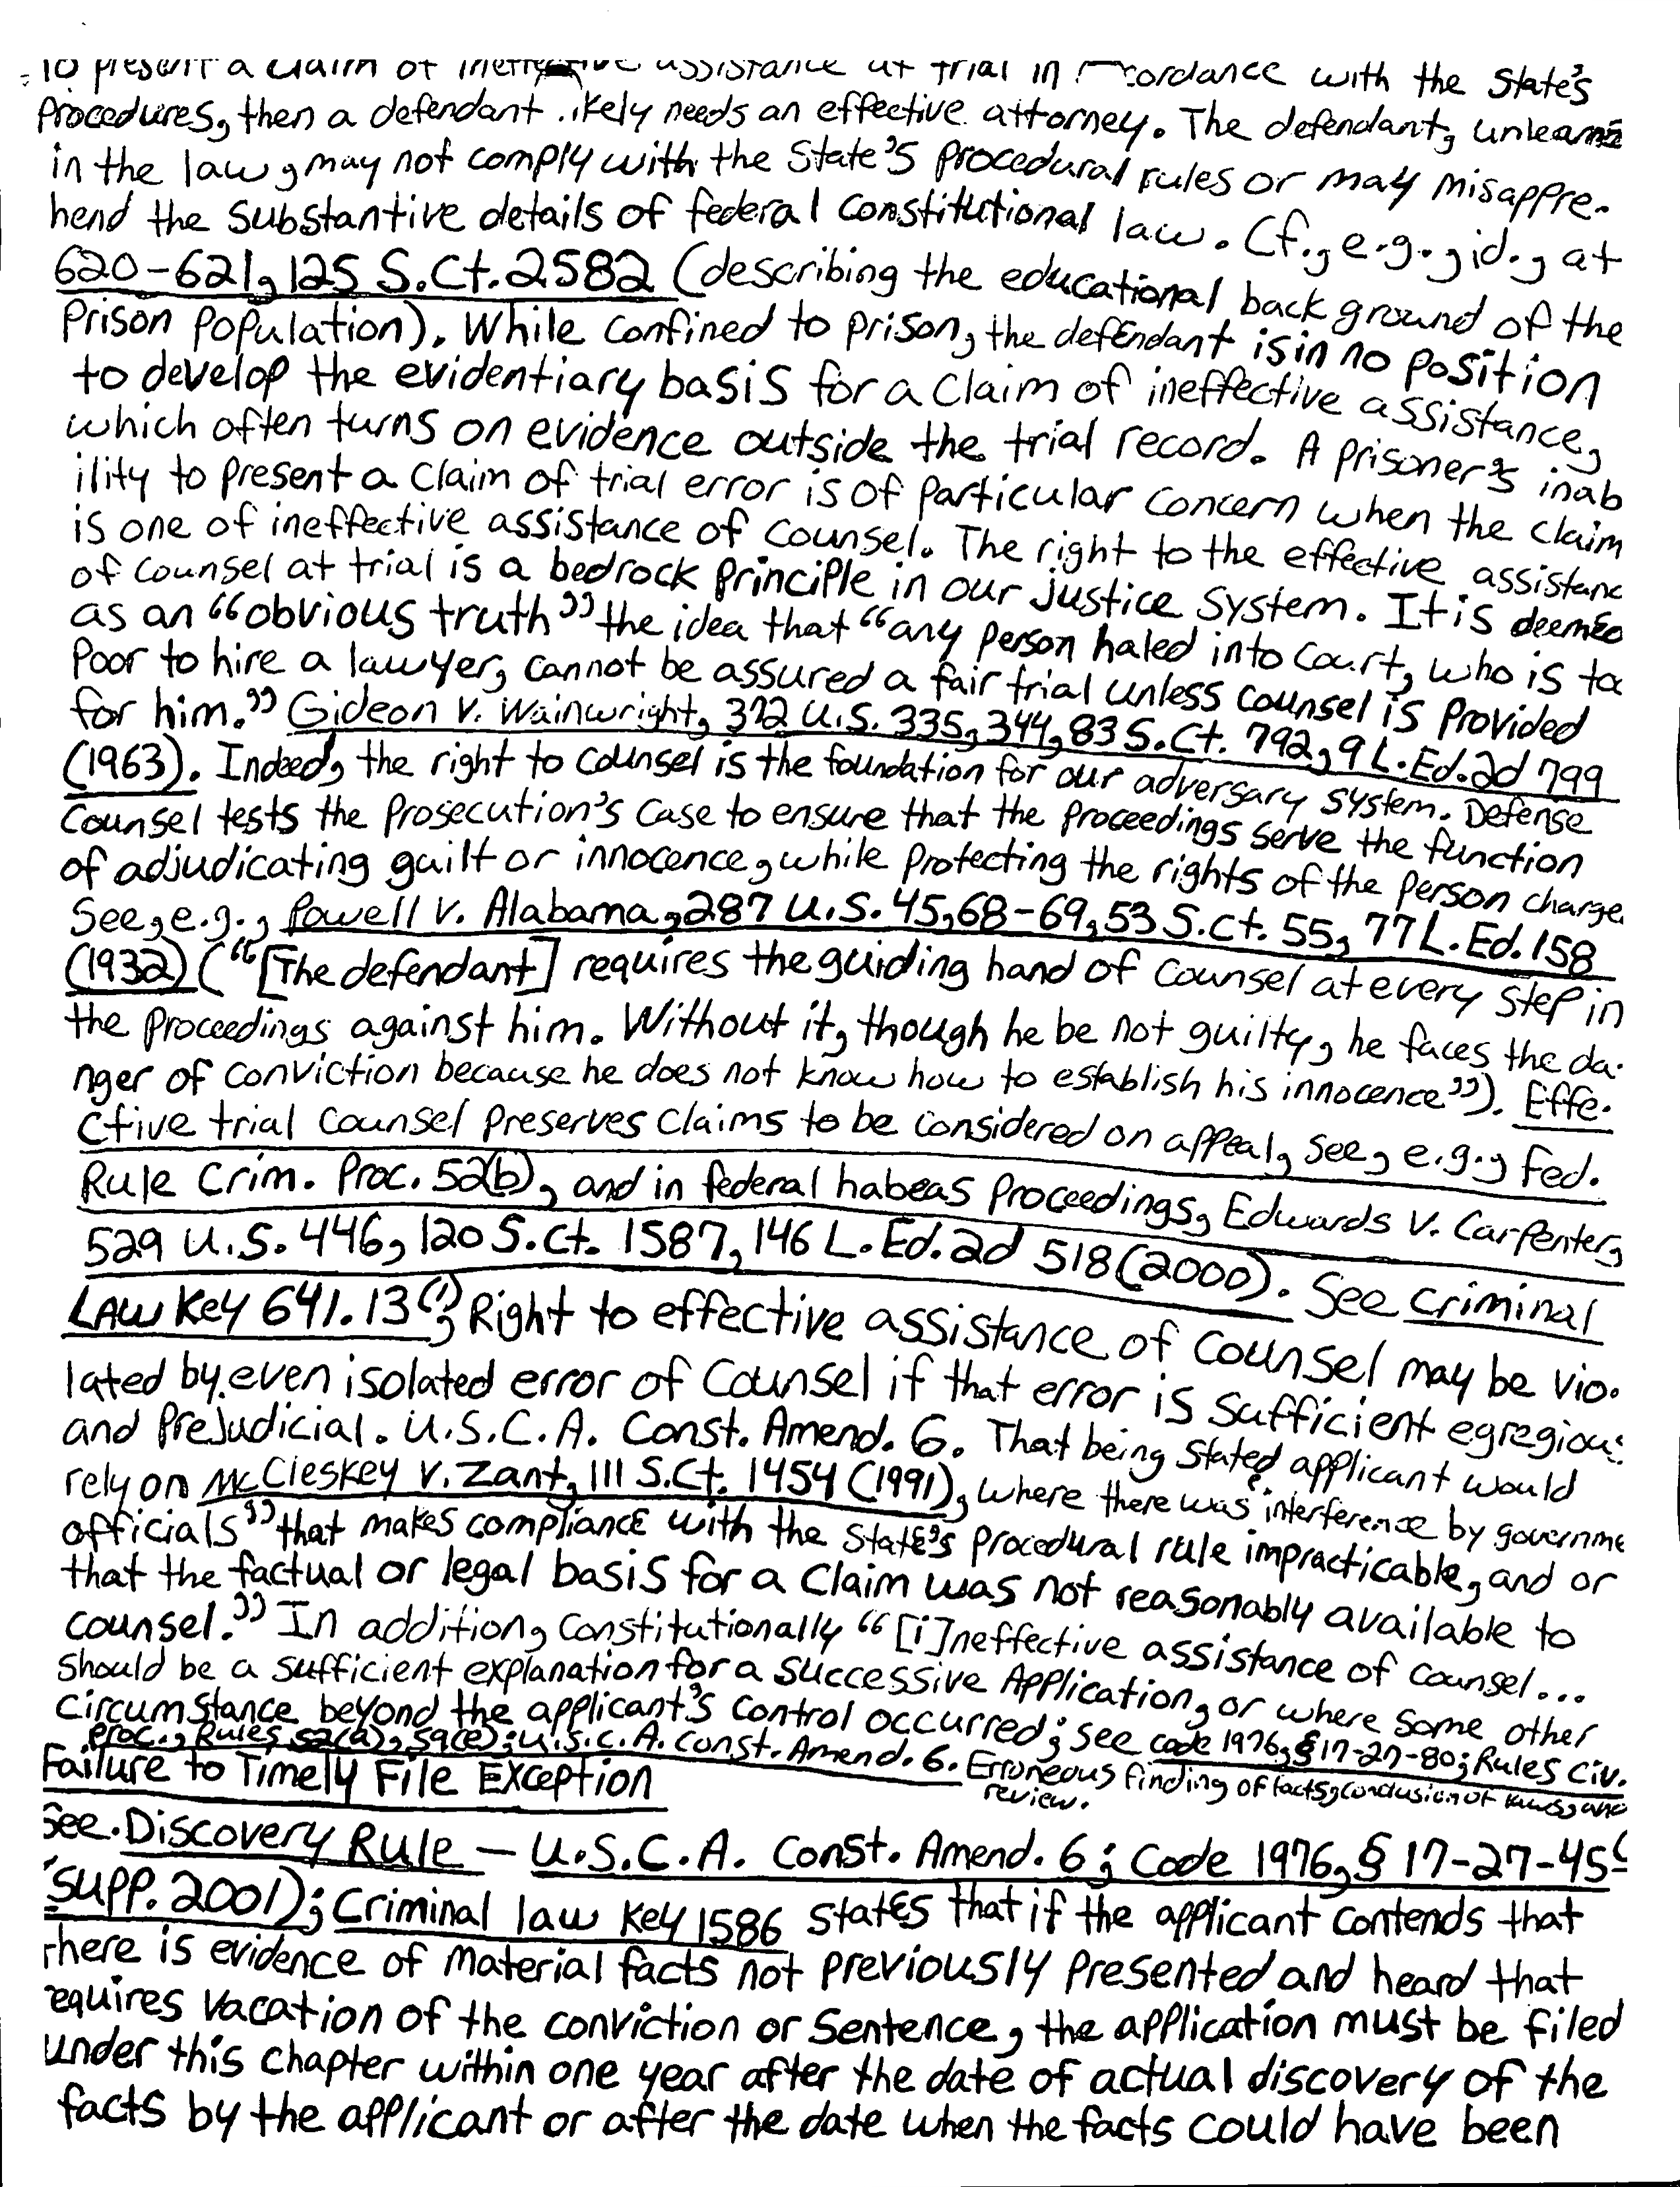 To present a claim of ineffective assistance at trial in accordance with the State's
Procedures, then a defendant likely needs an effective attorney. The defendant, unlearne
in the law, may not comply with the State's Procedural rules or may misappre-
hend the substantive details of federal Constitutional law. Cf., e.g., id., at
620-621, 125 S.Ct. 2582 (describing the educational back ground of the
Prison Population). While confined to prison, the defendant is in no position
to develop the evidentiary basis for a claim of ineffective assistance,
which often turns on evidence outside the trial record. A prisoner's inab
ility to present a claim of trial error is of particular concern when the claim
is one of ineffective assistance of counsel. The right to the effective assistanc
of counsel at trial is a bedrock principle in our justice system. It is deemed
as an "obvious truth" the idea that "any person haled into court, who is to
Poor to hire a lawyer, cannot be assured a fair trial unless counsel is provided
for him." Gideon v. Wainwright, 372 U.S. 335, 344, 83 S.Ct. 792, 9 L.Ed.2d 799
(1963). Indeed, the right to counsel is the foundation for our adversary system. Defense
Counsel tests the Prosecution's Case to ensure that the proceedings serve the function
of adjudicating guilt or innocence, while protecting the rights of the person charge
See, e.g., Powell v. Alabama, 287 U.S. 45, 68-69, 53 S.ct. 55, 77 L.Ed. 158
(1932) ("[The defendant] requires the guiding hand of counsel at every step in
the proceedings against him. Without it, though he be not guilty, he faces the da-
nger of conviction because he does not know how to establish his innocence"). Effe-
ctive trial counsel preserves claims to be considered on appeal, see, e.g., Fed.
Rule Crim. Proc. 52(b), and in federal habeas proceedings, Edwards v. Carpenter,
529 U.S. 446, 120 S.ct. 1587, 146 L.Ed.2d 518 (2000). See Criminal
LAW Key 641.13(1); Right to effective assistance of counsel may be vio-
lated by even isolated error of counsel if that error is sufficient egregious
and prejudicial. U.S.C.A. Const. Amend. 6. That being stated applicant would
rely on McCleskey v. Zant, 111 S.Ct. 1454 (1991), where there was "interference by governme
officials" that makes compliance with the State's Procedural rule impracticable, and or
that the factual or legal basis for a claim was not reasonably available to
counsel." In addition, Constitutionally "[i]neffective assistance of counsel...
should be a sufficient explanation for a successive Application, or where some other
circumstance beyond the applicant's control occurred; see code 1976, § 17-27-80; Rules Civ.
Proc., Rules 52(a), 59(e); U.S.C.A. Const. Amend. 6. Erroneous finding of facts, conclusion of laws, and
review.
Failure to Timely File Exception
See. Discovery Rule — U.S.C.A. Const. Amend. 6; Code 1976, § 17-27-45(
Supp. 2001); Criminal law Key 1586 states that if the applicant contends that
there is evidence of material facts not previously presented and heard that
requires vacation of the conviction or sentence, the application must be filed
under this chapter within one year after the date of actual discovery of the
facts by the applicant or after the date when the facts could have been